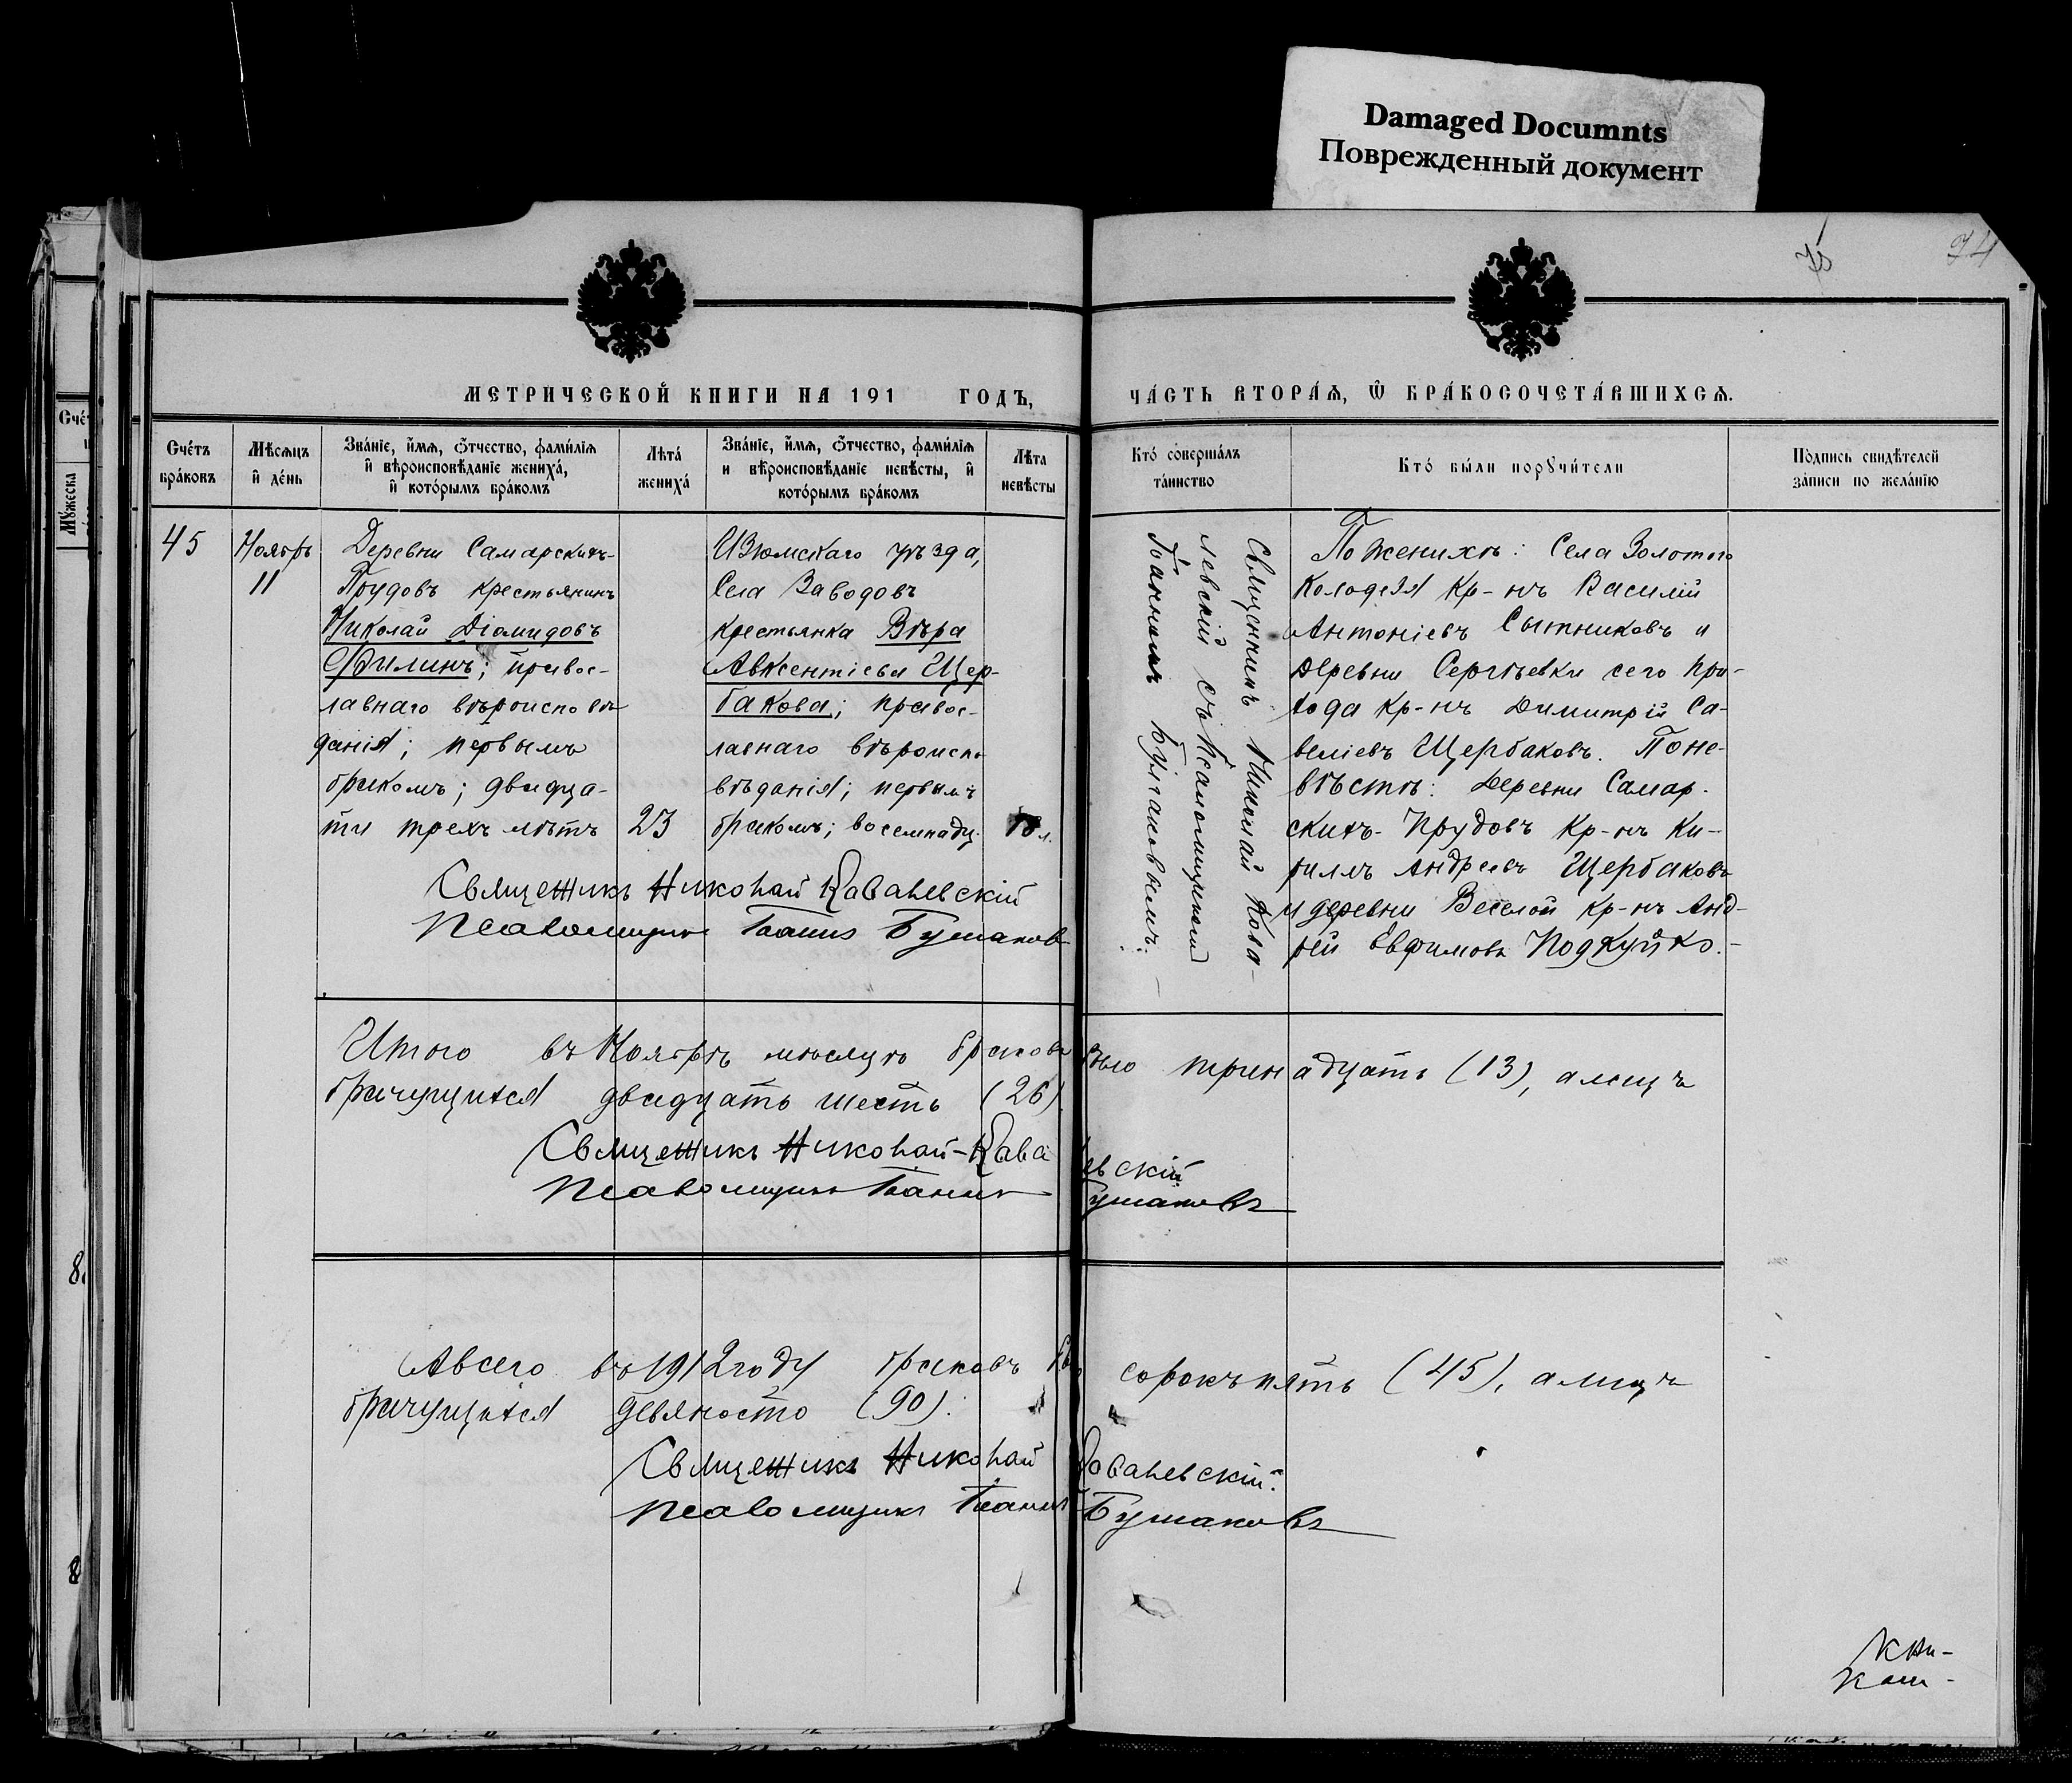 Damaged Documnts
Поврежденный документ
74
МЕТРИЧЕСКОЙ КНИГИ НА 191 ГОДЪ,
ЧАСТЬ ВТОРАЯ, Ѿ БРАКОСОЧЕТАВШИХСЯ.
Счетъ
браковъ
Мѣсяцъ
и день
Званіе, имя, ѻтчество, фамилія
и вѣроисповѣданіе жениха,
и которымъ бракомъ
Лѣта
жениха
Званіе, имя, ѻтчество, фамилія
и вѣроисповѣданіе невѣсты, и
которымъ бракомъ
Лѣта
невѣсты
Кто совершалъ
таинство
Кто были поручители
Подпись свидѣтелей
записи по желанію
Мужеска
45
Ноябрь
11
Деревни Самарскихъ-
Прудовъ крестьянинъ
Николай Діомидовъ
Филинъ; правос-
лавнаго вѣроисповѣ
данія; первымъ
бракомъ; двадца-
ти трехъ лѣтъ
23
Изюмскаго уѣзда,
Села Заводовъ
крестьянка Вѣра
Авксентіева Щер-
бакова; правос-
лавнаго вѣроиспо
вѣданія; первымъ
бракомъ; восемнадц.
18 л.
Священникъ Николай Ковалевскій
Псаломщикъ Іоаннъ Булгаковъ
Священникъ Николай Кова-
левскій съ псаломщикомъ
Іоанномъ Булгаковымъ. —
По женихѣ: Села Золотого
Колодезя кр-нъ Василій
Антоніевъ Сытниковъ и
деревни Сергѣевки сего при-
хода кр-нъ Димитрій Са-
веліевъ Щербаковъ. По не-
вѣстѣ: деревни Самар-
скихъ-Прудовъ кр-нъ Ки-
риллъ Андреевъ Щербаковъ
и деревни Веселой кр-нъ Анд-
рей Евфимовъ Подкуйко. —
Итого въ Ноябрѣ мѣсяцѣ браковъ было тринадцать (13), а лицъ
брачущихся двадцать шесть (26).
Священникъ Николай Ковалевскій
Псаломщикъ Іоаннъ Булгаковъ
А всего въ 1912 году браковъ сорокъ пять (45), а лицъ
брачущихся девяносто (90).
Священникъ Николай Ковалевскій.
Псаломщикъ Іоаннъ Булгаковъ